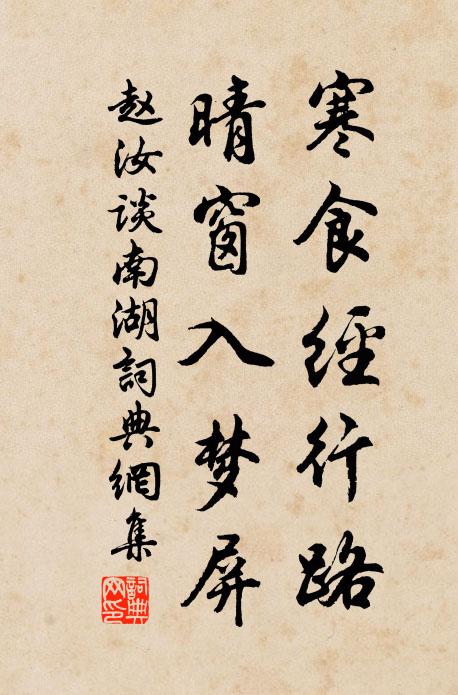 寒食經行路
晴窗入梦屏
赵汝谈南湖詞典網集
詞典